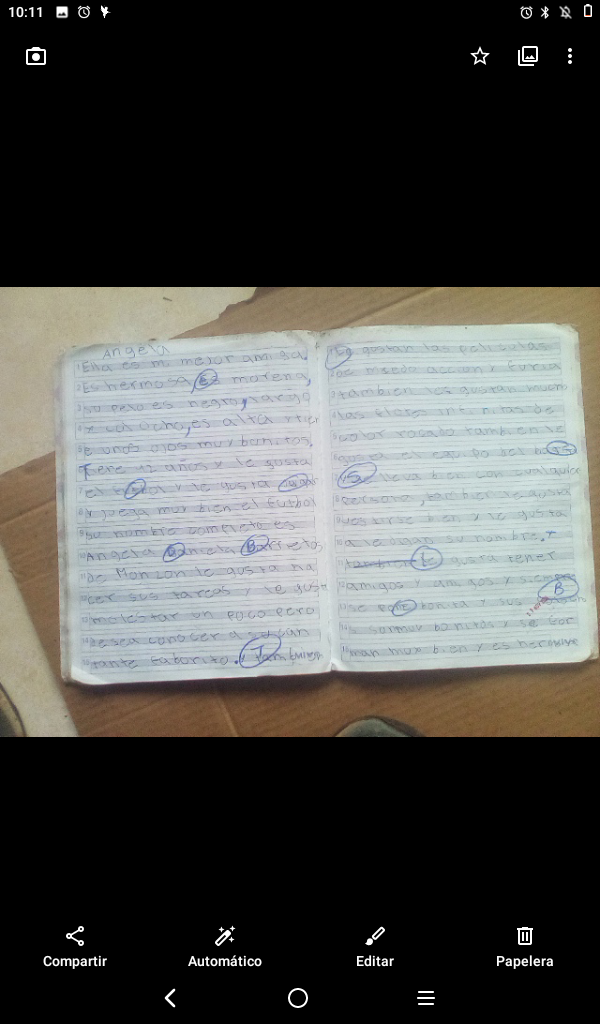 10:11
Angela
Ella es mi mejor amiga.
Es hermosa Es morena,
su pelo es negro, largo
y colocho, es alta y tien
e unos ojos muy bonitos.
Tiene 12 años y le gusta
el y le gusta jugar
y juega muy bien el futbol
su nombre completo es
Angela Daniela Barrietos
De Monzon le gusta ha
cer sus tareas y le gust
molestar un poco pero
desea conocer a su can
tante faborito. y tambien
Le gustan las peliculas
de miedo accion y furia
tambien les gustan much
las flores infinitas de
color rosado tambien le
gusta el equipo del
Se lleva bien con cualquier
persona, tambien le gusta
vestirse bien y le gusta
q le digan su nombre. y
tambien le gusta tener
amigos y amigas y siempre
se pone bonita y sus
s son muy bonitos y se for
man muy bien y es
Compartir
Automático
Editar
Papelera